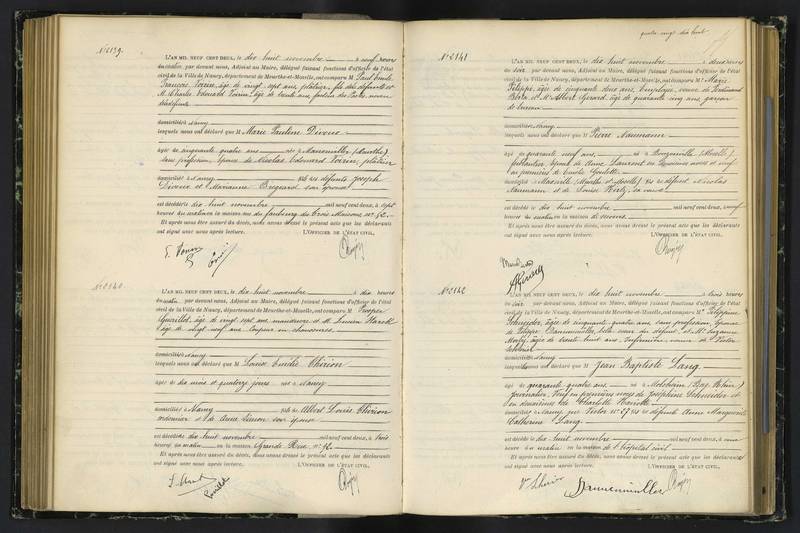 N° 2139.
L'AN MIL NEUF CENT DEUX, le dix huit novembre à neuf heures
du matin par devant nous, Adjoint au Maire, délégué faisant fonctions d'officier de l'état
civil de la Ville de Nancy, département de Meurthe-et-Moselle, ont comparu M. Paul Emile
François Voirin, âgé de vingt sept ans, plâtrier, fils des défunts et
M. Charles Edouard Voirin, âgé de trente ans, facteur des Postes, neveu
des défunts
domiciliés à Nancy
lesquels nous ont déclaré que M Marie Pauline Divoux
âgée de cinquante quatre ans née à Manonviller (Meurthe)
sans profession, épouse de Nicolas Edouard Voirin, plâtrier
domiciliée à Nancy fille des défunts Joseph
Divoux et Marianne Bregeard son épouse
est décédée dix huit novembre mil neuf cent deux, à sept
heures du matin en la maison rue du faubourg des Trois Maisons, n° 92.
Et après nous être assuré du décès, nous avons dressé le présent acte que les déclarants
ont signé avec nous après lecture. L'OFFICIER DE L'ÉTAT CIVIL,
E. Voirin
N° 2140.
L'AN MIL NEUF CENT DEUX, le dix huit novembre à dix heures
du matin, par devant nous, Adjoint au Maire, délégué faisant fonctions d'officier de l'état
civil de la Ville de Nancy, département de Meurthe-et-Moselle, ont comparu M. Prosper
âgé de vingt sept ans, manoeuvre et M. Lucien
âgé de vingt neuf ans, coupeur en chaussures
domiciliés à Nancy
lesquels nous ont déclaré que M Louis Emile Thirion
âgé de dix mois et quatorze jours né à Nancy
domicilié à Nancy fils de Albert Louis Thirion
cordonnier et de Anna Simon son épouse
est décédé dix huit novembre mil neuf cent deux, à trois
heures du matin en la maison Grande Rue, n° 92.
Et après nous être assuré du décès, nous avons dressé le présent acte que les déclarants
ont signé avec nous après lecture. L'OFFICIER DE L'ÉTAT CIVIL,
quatre vingt dix huit
N° 2141
L'AN MIL NEUF CENT DEUX, le dix huit novembre à deux heures
du soir par devant nous, Adjoint au Maire, délégué faisant fonctions d'officier de l'état
civil de la Ville de Nancy, département de Meurthe-et-Moselle, ont comparu M. Marie
Philippe, âgée de cinquante deux ans, employée, veuve de Ferdinand
et M. Albert Gérard, âgé de quarante cinq ans, garçon
de bureau
domiciliés à Nancy
lesquels nous ont déclaré que M Pierre Naumann
âgé de quarante neuf ans né à Bouzonville (Moselle)
ferblantier, époux de Anne Laurent en deuxièmes noces et veuf
en premières de
domicilié à Maxéville (Meurthe et Moselle) fils de défunt Nicolas
Naumann et de Louise Hertz sa veuve
est décédé dix huit novembre mil neuf cent deux, à neuf
heures du matin en la maison de secours.
Et après nous être assuré du décès, nous avons dressé le présent acte que les déclarants
ont signé avec nous après lecture. L'OFFICIER DE L'ÉTAT CIVIL,
N° 2142
L'AN MIL NEUF CENT DEUX, le dix huit novembre à trois heures
du soir par devant nous, Adjoint au Maire, délégué faisant fonctions d'officier de l'état
civil de la Ville de Nancy, département de Meurthe-et-Moselle, ont comparu M. Philippine
Schneider, âgée de cinquante quatre ans, sans profession, épouse
de Philippe Hannenmuller, belle soeur du défunt et M. Suzanne
âgée de trente huit ans, infirmière, veuve de Victor
domiciliés à Nancy
lesquels nous ont déclaré que M Jean Baptiste Lang
âgé de quarante quatre ans né à Molsheim (Bas Rhin)
journalier, veuf en premières noces de Joséphine Schneider et
en deuxièmes de Charlotte
domicilié à Nancy, rue Victor n° 27 fils de défunte Anne Marguerite
Catherine Lang.
est décédé dix huit novembre mil neuf cent deux, à une
heure du matin en la maison de l'hôpital civil
Et après nous être assuré du décès, nous avons dressé le présent acte que les déclarants
ont signé avec nous après lecture. L'OFFICIER DE L'ÉTAT CIVIL,
Hannenmuller